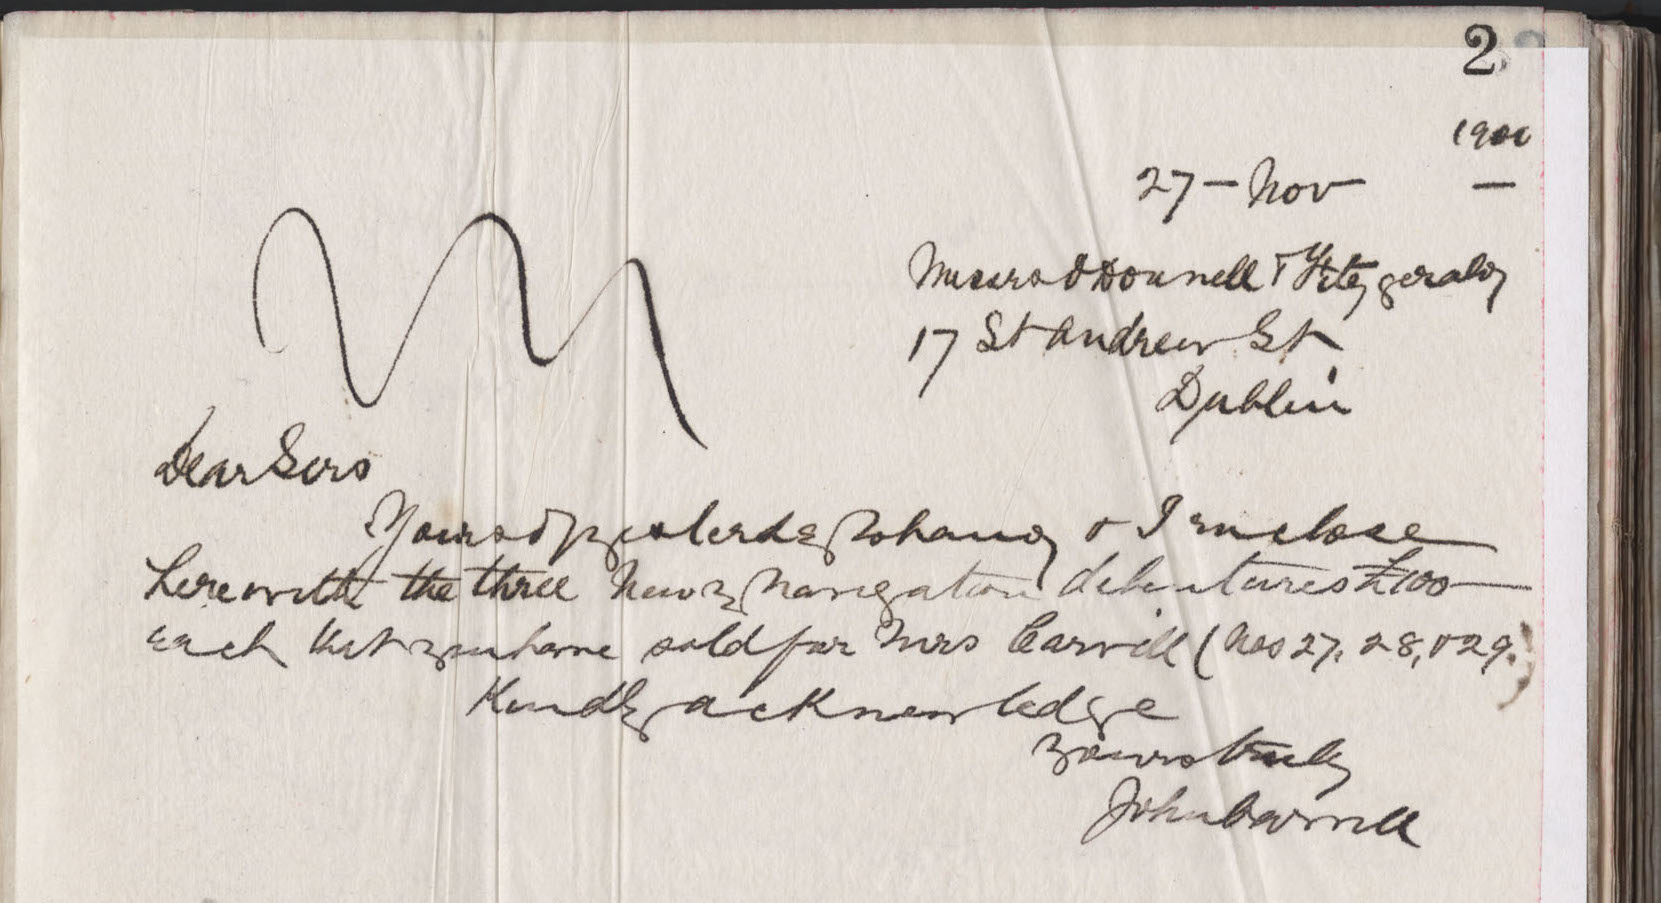 2
1900
27 - Nov -
Messrs O'Donnell & Fitzgerald
17 St Andrew St
Dublin
Dear Sirs
Yours of yesterday to hand & I enclose
herewith the three Newry Navigation debentures £100
each that you have sold for Mrs Carvill (Nos 27, 28, & 29.)
Kindly acknowledge
Yours truly
John Carvill